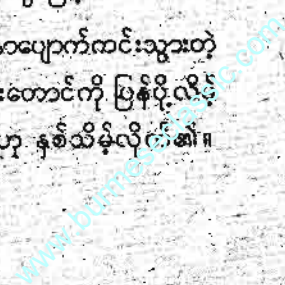 ာပျောက်ကင်းသွားတဲ့
းတောင်ကို ပြန်ပို့လိုက်
ဟု နှစ်သိမ့်လိုက်၏။
www.burmeseclassic.com